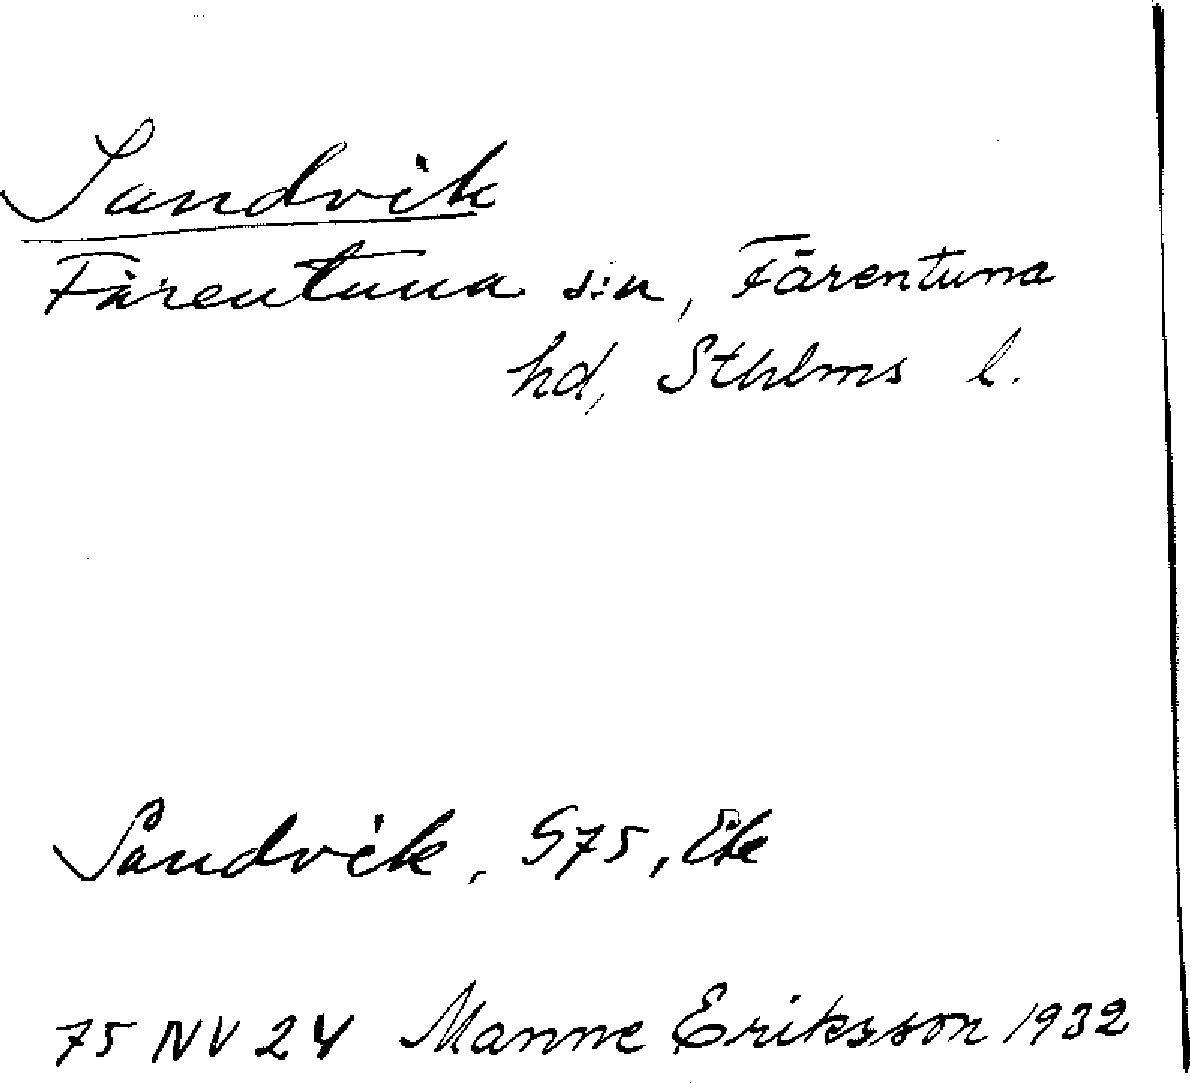 Sandvik
Färentuna s:n, Färentuna
hd, Sthlms l.
Sandvik, S75, Ek
75 NV 24 Manne Eriksson 1932